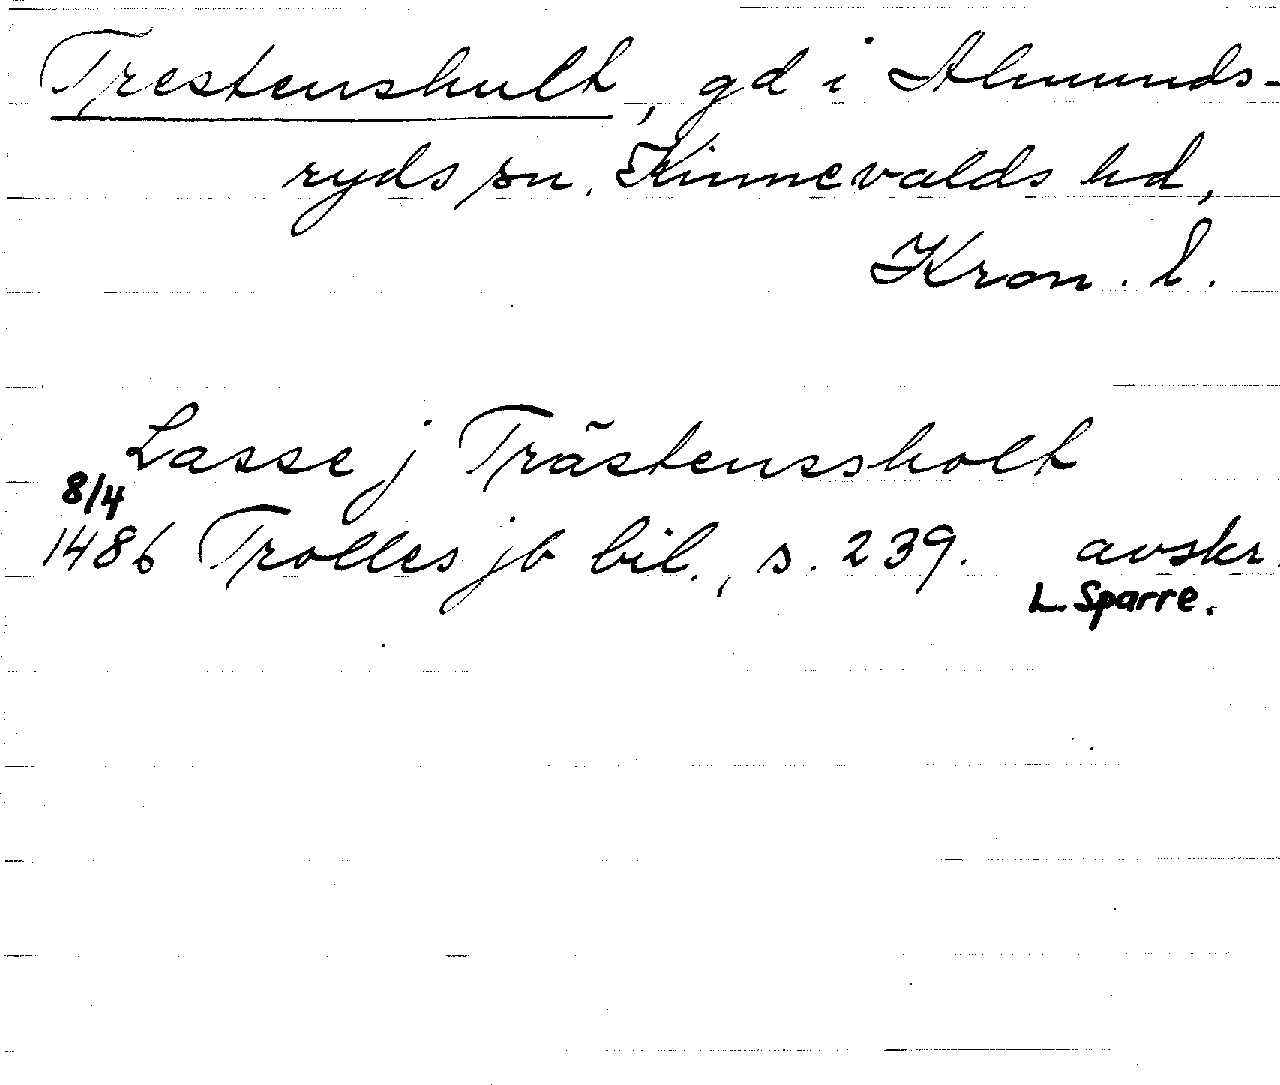 Trestenshult, gd i Almunds-
ryds sn, Kinnevalds hd,
Kron. l.
Lasse j Trästenssholt
8/4
1486 Trolles jb bil., s. 239. avskr.
L. Sparre.